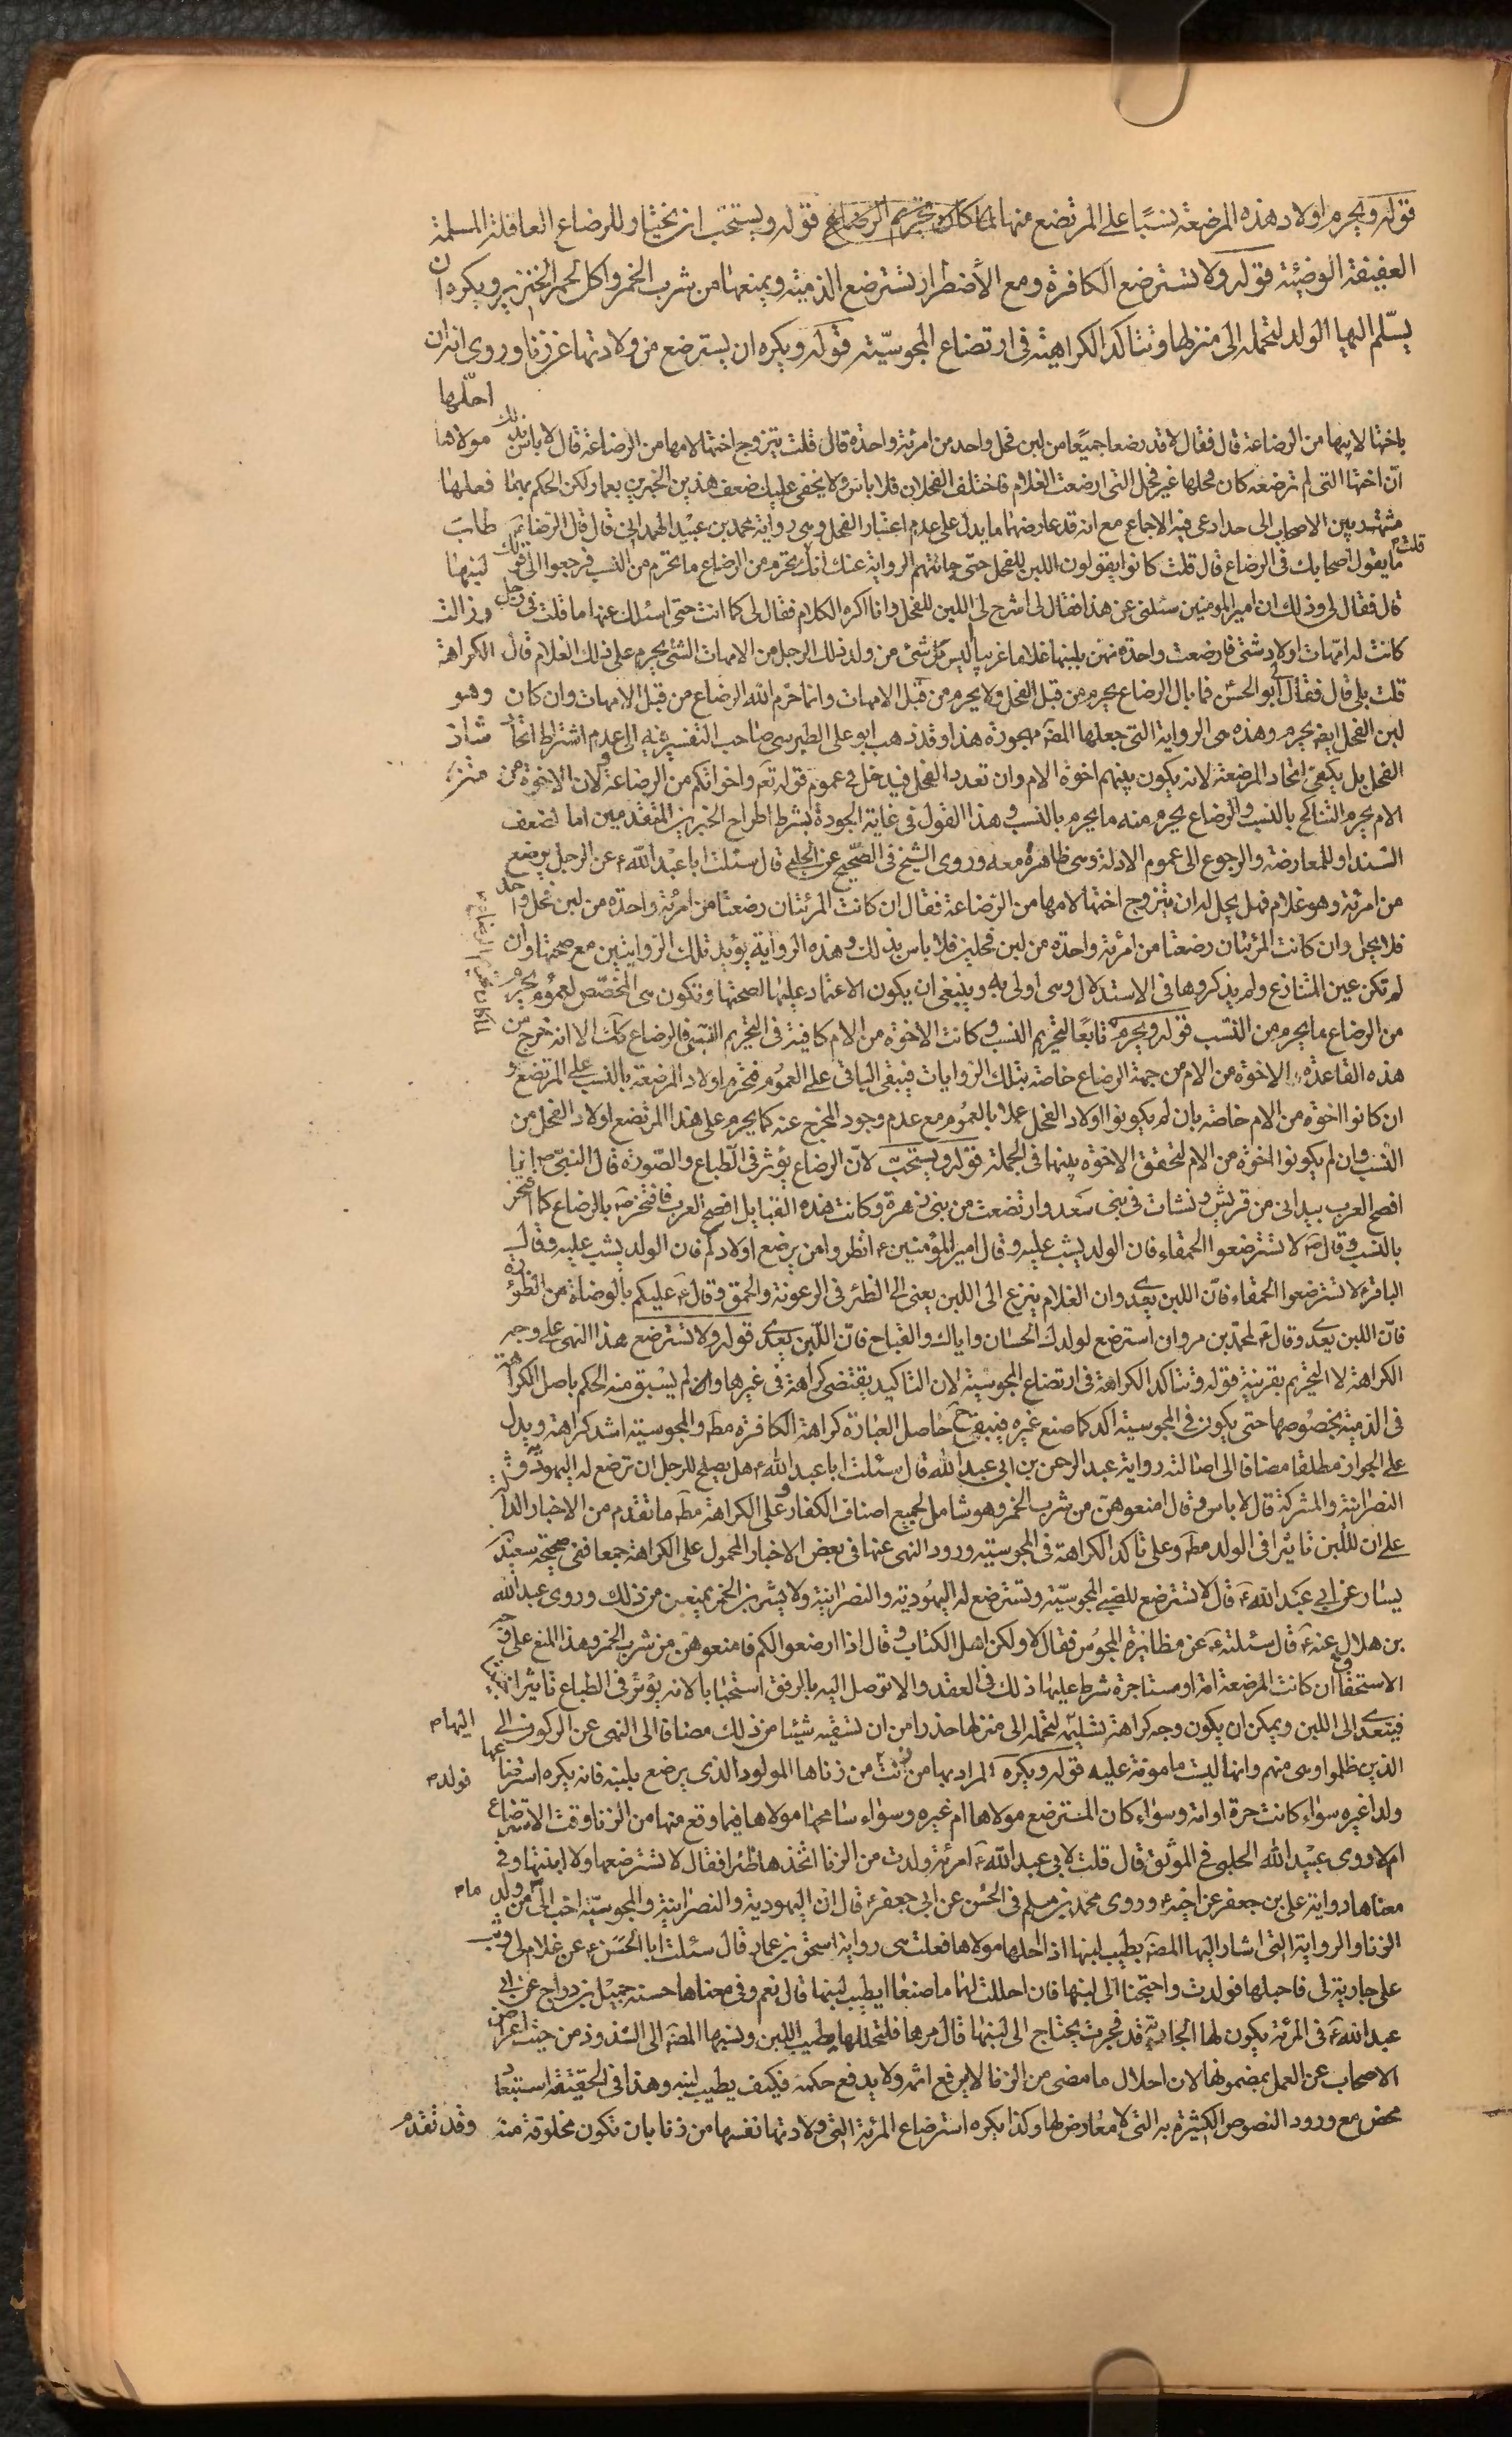 قوله ويحرم اولاد هذه المرضعة نسبًا على المرتضع منها لما كان تحريم الرضاع قوله ويستحب ان يختار للرضاع العاقلة المسلمة
العفيفة الوضيئة قوله ولا تسترضع الكافرة ومع الأضطرار تسترضع الذمية ويمنعها من شرب الخمر واكل لحم الخنزير ويكره ان
يسلّم اليها الولد لتحمله الى منزلها وتتاكد الكراهية فى ارتضاع المجوسيّة قوله ويكره ان يسترضع من ولادتها عن زنا وروى انه ان
احلّها
باختها لابيها من الرضاعة قال فقال لا قد رضعا جميعًا من لبن فحل واحد من امرئة واحدة قال قلت يتزوج اختها لامها من الرضاعة قال لا باس بذلك مولاها
انّ اختها التى لم ترضعه كان فحلها غير فحل التى ارضعت الغلام فاختلف الفحلان فلا باس ولا يخفى عليك ضعف هذين الخبرين بعمار لكن الحكم بهما فعلها
مشتهر بين الاصحاب الى حد ادعى فيه الاجماع مع انه قد عارضهما ما يدل على عدم اعتبار الفحل وهى رواية محمد بن عبيد الهمدانى قال قال الرضا ع طاب
قلت ما يقول اصحابك فى الرضاع قال قلت كانوا يقولون اللبن للفحل حتى جائتهم الرواية عنك انك تحرم من الرضاع ما يحرم من النسب فرجعوا الى قولك لبنها
قال فقال لى وذلك ان امير المومنين سئلنى عن هذا فقال لى اشرح لى اللبن للفحل وانا اكره الكلام فقال لى كما انت حتى اسئلك عنها ما قلت فى رجل وزالت
كانت له امّهات اولاد شتى فارضعت واحدة منهن بلبنها غلاما غريبا أليس كل شئ من ولد ذلك الرجل من الامهات الشتى يحرم على ذلك الغلام قال الكراهة
قلت بلى قال فقال لى ابو الحسن فما بال الرضاع يحرم من قبل الفحل ولا يحرم من قبل الامهات وانما حرّم الله الرضاع من قبل الامهات وان كان وهو
لبن الفحل ايضا يحرم وهذه هى الرواية التى جعلها المصَ مهجورة هذا وقد ذهب ابو على الطبرسى صاحب التفسير فيه الى عدم اشتراط اتحاد شاذ
الفحل بل يكفى اتحاد المرضعة لانه يكون بينهم اخوّة الام وان تعدد الفحل فيدخل فى عموم قوله تعَ واخواتكم من الرضاعة ولان الاخوة من متن
الام يحرم التناكح بالنسب والرضاع يحرم منه ما يحرم بالنسب وهذا القول فى غاية الجودة بشرط اطراح الخبرين المتقدمين اما لضعف
السند او للمعارضة والرجوع الى عموم الادلة وهى ظاهرة معه وروى الشيخ فى الصّحيح عن الحلبى قال سئلت ابا عبد الله ع عن الرجل يرضع
من امرئة وهو غلام فهل يحل له ان يتزوج اختها لامها من الرضاعة فقال ان كانت المرئتان رضعتا من امرئة واحدة من لبن فحل واحد
فلا يحل وان كانت المرئتان رضعتا من امرئة واحدة من لبن فحلين فلا باس بذلك وهذه الرواية يؤيد تلك الروايتين مع صحتها وان
لم تكن عين المتنازع ولم يذكروها فى الاستدلال وهى اولى به وينبغى ان يكون الاعتماد عليها لصحتها وتكون هى المخصّص لعموم يحرم
من الرضاع ما يحرم من النسب قوله ويحرم تابعًا لتحريم النسب وكانت الاخوّة من الام كافية فى التحريم النسبى فالرضاع كك الا انه خرج من
هذه القاعدة الاخوّة من الام من جهة الرضاع خاصة بتلك الروايات فيبقى الباقى على العموم فتحرم اولاد المرضعة بالنسب على المرتضع و
ان كانوا اخوة من الام خاصة بان لم يكونوا اولاد الفحل عملا بالعموم مع عدم وجود المخرج عنه كما يحرم على هذا المرتضع اولاد الفحل من
النسب وان لم يكونوا اخوة من الام لتحقق الاخوّة بينهما فى الجملة قوله ويستحبّ لانّ الرضاع يؤثر فى الطباع والصّورة قال النبىّ ص انا
افصح العرب بيد انى من قريش ونشات فى بنى سعد وارتضعت من بنى زهرة وكانت هذه القبايل افصح العرب فافتخر ص بالرضاع كما افتخر
بالنسب وقال ص لا تسترضعوا الحمقاء فان الولد يشب عليه وقال امير المؤمنين ع انظروا من يرضع اولادكم فان الولد يشب عليه وقال
الباقر ع لا تسترضعوا الحمقاء فانّ اللبن يعدى وان الغلام ينزع الى اللبن يعنى الى الظئر فى الرعونة والحمق وقال ع عليكم بالوضاة من الظؤرة
فانّ اللبن يعدى وقال ع لمحمد بن مروان استرضع لولدك الحسان واياك والقباح فانّ اللّبن يعدى قوله ولا تسترضع هذا النهى على وجه
الكراهة لا التحريم بقرنية قوله وتتاكد الكراهة فى ارتضاع المجوسية لان التاكيد يقتضى كراهة فى غيرها وان لم يسبق منه الحكم باصل الكراهة
فى الذمية بخصوصها حتى يكون فى المجوسية آكد كما صنع غيره فيبقى ح حاصل العبارة كراهة الكافرة مطَ والمجوسية اشد كراهة ويدل
على الجواز مطلقا مضافا الى اصالته رواية عبد الرحمن بن ابى عبد الله قال سئلت ابا عبد الله ع هل يصلح للرجل ان ترضع له اليهوديّة و
النصرانية والمشركة قال لا باس وقال امنعوهنّ من شرب الخمر وهو شامل لجميع اصناف الكفار وعلى الكراهة مطَ ما تقدم من الاخبار الدالة
على ان للّبن تاثيرا فى الولد مطَ وعلى تاكد الكراهة فى المجوسيّة ورود النهى عنها فى بعض الاخبار المحمول على الكراهة جمعا ففى صحيحة سعيد بن
يسار عن ابى عبد الله ع قال لا تسترضع للصبى المجوسيّة وتسترضع له اليهودية والنصرانية ولا يشربن الخمر يمنعن من ذلك وروى عبد الله
بن هلال عنه ع قال سئلته ع عن مظائرة المجوس فقال لا ولكن اهل الكتاب وقال اذا ارضعوا لكم فامنعوهن من شرب الخمر وهذا المنع على وجه
الاستحقاق ان كانت المرضعة امة او مستاجرة شرط عليها ذلك فى العقد والا توصل اليه بالرفق استحبابا لانه يؤثر فى الطباع تاثيرا
فيتعدى الى اللبن ويمكن ان يكون وجه كراهة تسليمه لتحمله الى منزلها حذرا من ان تسقيه شيئا من ذلك مضافا الى النهى عن الركون الى اليهام
الذين ظلموا وهى منهم وانها ليست مامونة عليه قوله ويكره المراد بها من زنت من زناها المولود الذى يرضع بلبنه فانه يكره استرضاعها فولدم
ولدا غيره سواء كانت حرة او امة وسواء كان المسترضع مولاها ام غيره وسواء سامحها مولاها فيما وقع منها من الزنا وقت الاسترضاع
ام لا وروى عبيد الله الحلبى فى الموثق قال قلت لابى عبد الله ع امرئة ولدت من الزنا اتخذها ظئرا فقال لا تسترضعها ولا ابنتها وفى
معناها رواية على بن جعفر عن اخيه ع وروى محمد بن مسلم فى الحسن عن ابى جعفر ع قال ان اليهودية والنصرانية والمجوسيّة احب الىّ من ولد مام
الزنا والرواية التى اشار اليها المصَ بطيب لبنها اذا احلها مولاها فعلت هى رواية اسحق بن عمار قال سئلت ابا الحسن ع عن غلام لى وثب
على جارية لى فاحبلها فولدت واحتجنا الى لبنها فان احللت لهما ما صنعا ايطيب لبنها قال نعم وفى معناها حسنة جميل بن دراج عن ابى
عبد الله ع فى المرئة يكون لها الجارية قد فجرت يحتاج الى لبنها قال مرها فلتحللها يطيب اللبن ونسبهما المصَ الى الشذوذ من حيث اعراض
الاصحاب عن العمل بمضمونها لان احلال ما مضى من الزنا لا يرفع اثمه ولا يدفع حكمه فكيف يطيب لبنه وهذا فى الحقيقة استبعاد
محض مع ورود النصوص الكثيرة به التى لا معارض لها وكذا يكره استرضاع المرئة التى ولادتها نفسها من زنا بان تكون مخلوقة منه وقد تقدم